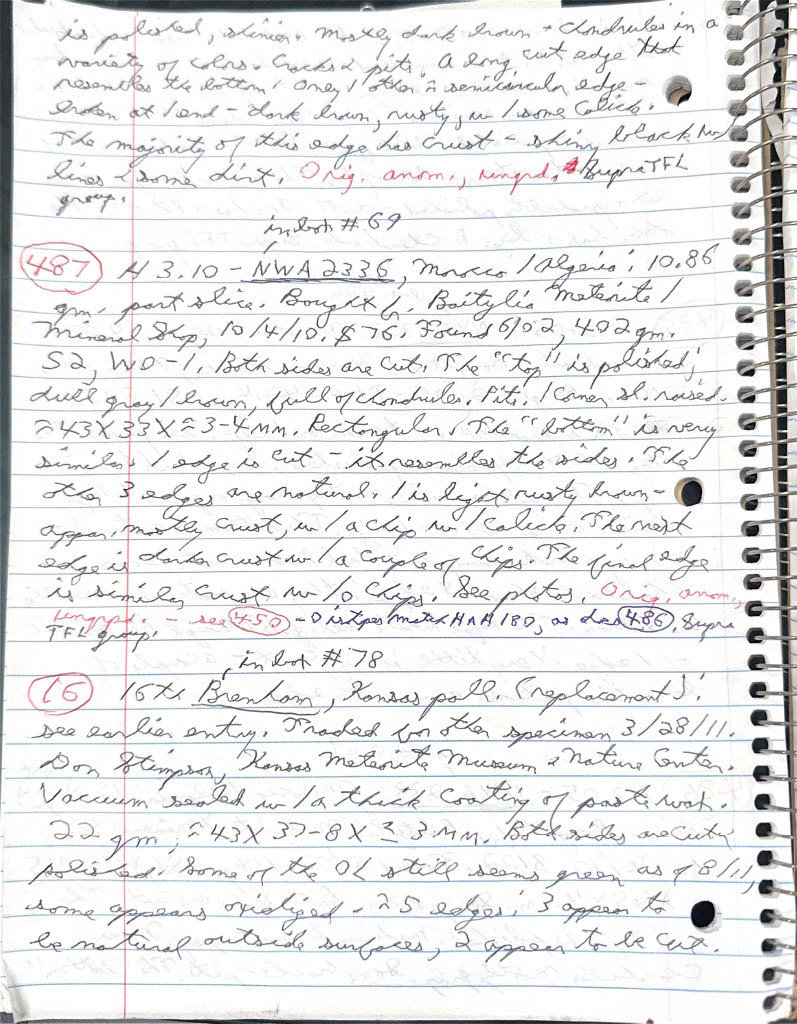 is polished, shinier. Mostly dark brown + chondrules in a
variety of colors. Cracks & pits. A long cut edge that
resembles the bottom. Only 1 other ≈ semicircular edge -
broken at 1 end - dark brown, rusty, w/ some Calich.
The majority of this edge has crust - shiny black w/
lines & some dirt. Orig. anom., ungrd, Supra TFL
group.
in box # 69
487 H 3.10 - NWA 2336, Morocco / Algeria; 10.86
gm. part slice. Bought fr. Baitylia Meteorite /
Mineral Shop, 10/4/10. $76. Found 6/02, 402 gm.
S2, W0-1. Both sides are cut. The "top" is polished;
dull gray / brown, full of chondrules. Pits. 1 corner sl. raised.
≈ 43 X 33 X ≈ 3-4 MM. Rectangular. The "bottom" is very
similar. 1 edge is cut - it resembles the sides. The
other 3 edges are natural. 1 is light rusty brown -
appar. mostly crust, w/ a chip w/ Calich. The next
edge is darker crust w/ a couple of chips. The final edge
is similar crust w/ 0 chips. See photos. Orig. anom.,
ungrpd. - see 450 - O istpes match HAH 180, as does 486. Supra
TFL group.
in box # 78
16 16th Brenham, Kansas pall. (replacement);
see earlier entry. Traded for other specimen 3/28/11.
Don Stimpson, Kansas Meteorite Museum & Nature Center.
Vacuum sealed w/ a thick coating of paste wax.
22 gm, ≈ 43 X 37-8 X ≈ 3 MM. Both sides are cut,
polished. Some of the OL still seems green as of 8/11,
some appears oxidized. ≈ 5 edges; 3 appear to
be natural outside surfaces, 2 appear to be cut.